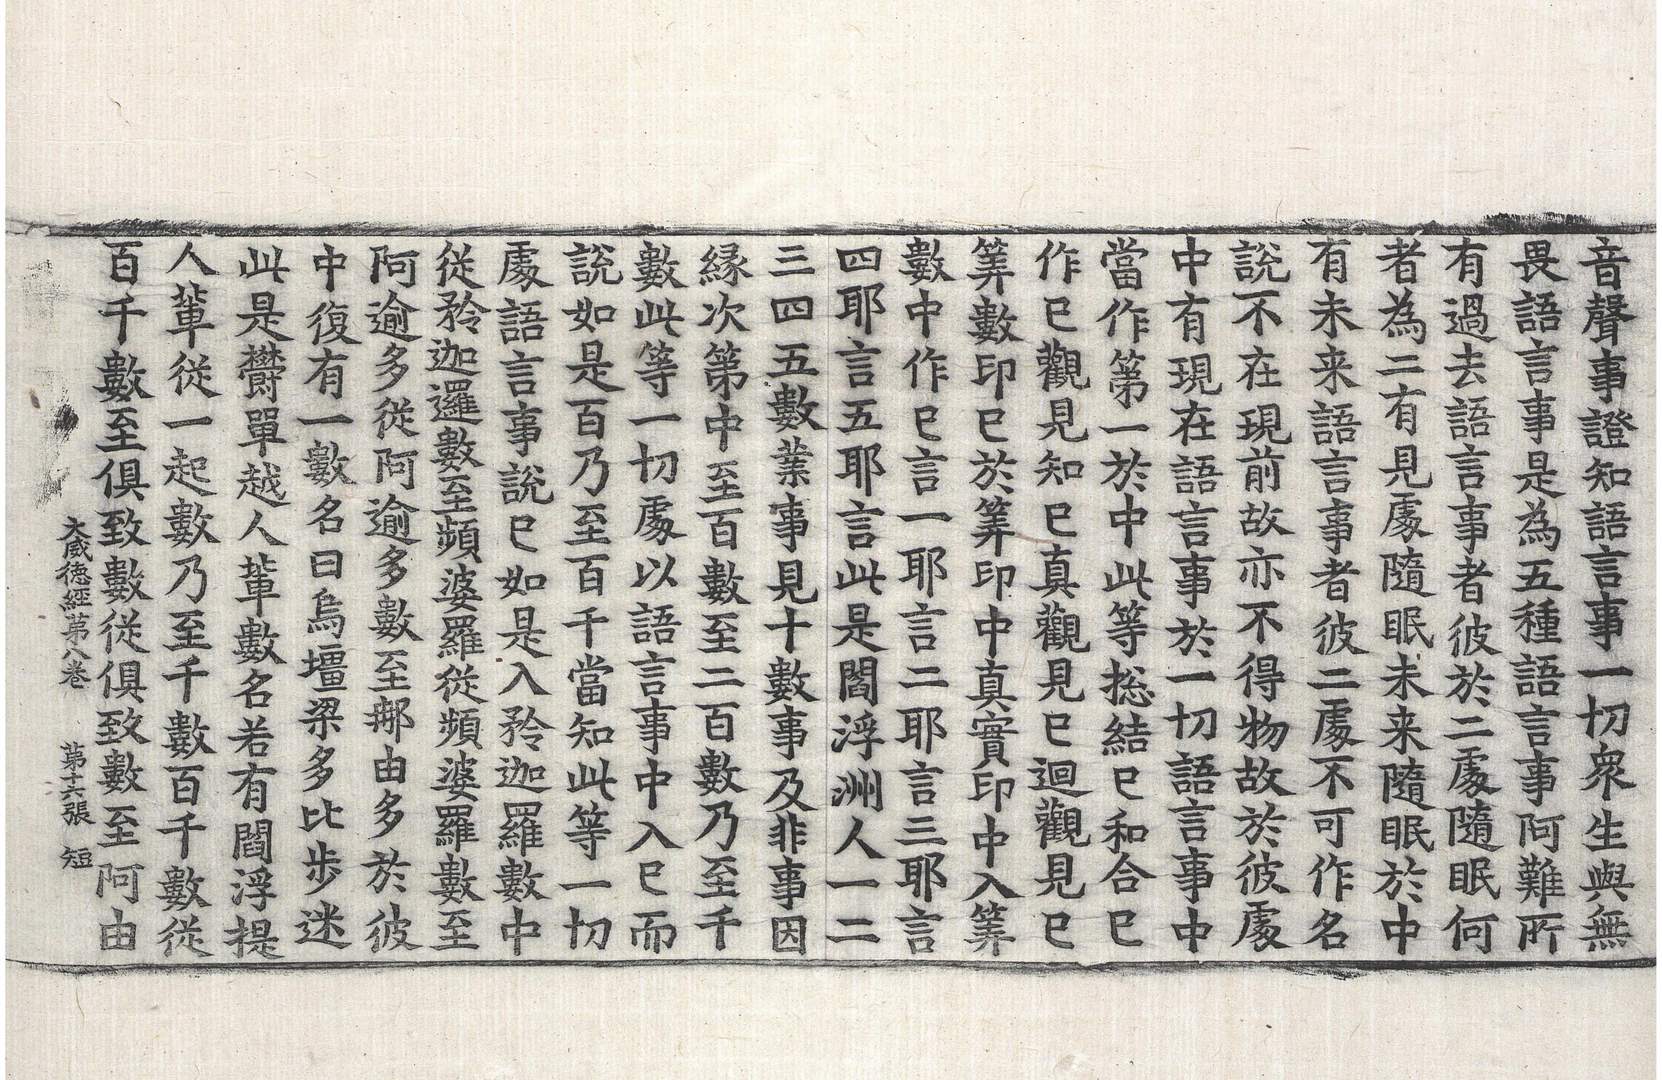 音聲事證知語言事一切衆生與無
畏語言事是為五種語言事阿難所
有過去語言事者彼於二處隨眠何
者為二有見處隨眠未来隨眠於中
有未来語言事者彼二處不可作名
說不在現前故亦不得物故於彼處
中有現在語言事於一切語言事中
當作第一於中此等捴結已和合已
作已觀見知已真觀見已迴觀見已
筭數印已於筭印中真實印中入筭
數中作已言一耶言二耶言三耶言
四耶言五耶言此是閻浮洲人一二
三四五數業事見十數事及非事因
縁次第中至百數至二百數乃至千
數此等一切處以語言事中入已而
說如是百乃至百千當知此等一切
處語言事說已如是入矜迦羅數中
從矜迦邏數至頻婆羅從頻婆羅數至
阿逾多從阿逾多數至𨚗由多於彼
中復有一數名曰烏壃梁多比步迷
此是欝單越人輩數名若有閻浮提
人輩從一起數乃至千數百千數從
百千數至俱致數從俱致數至阿由
大威徳經第八卷　第十六張　短